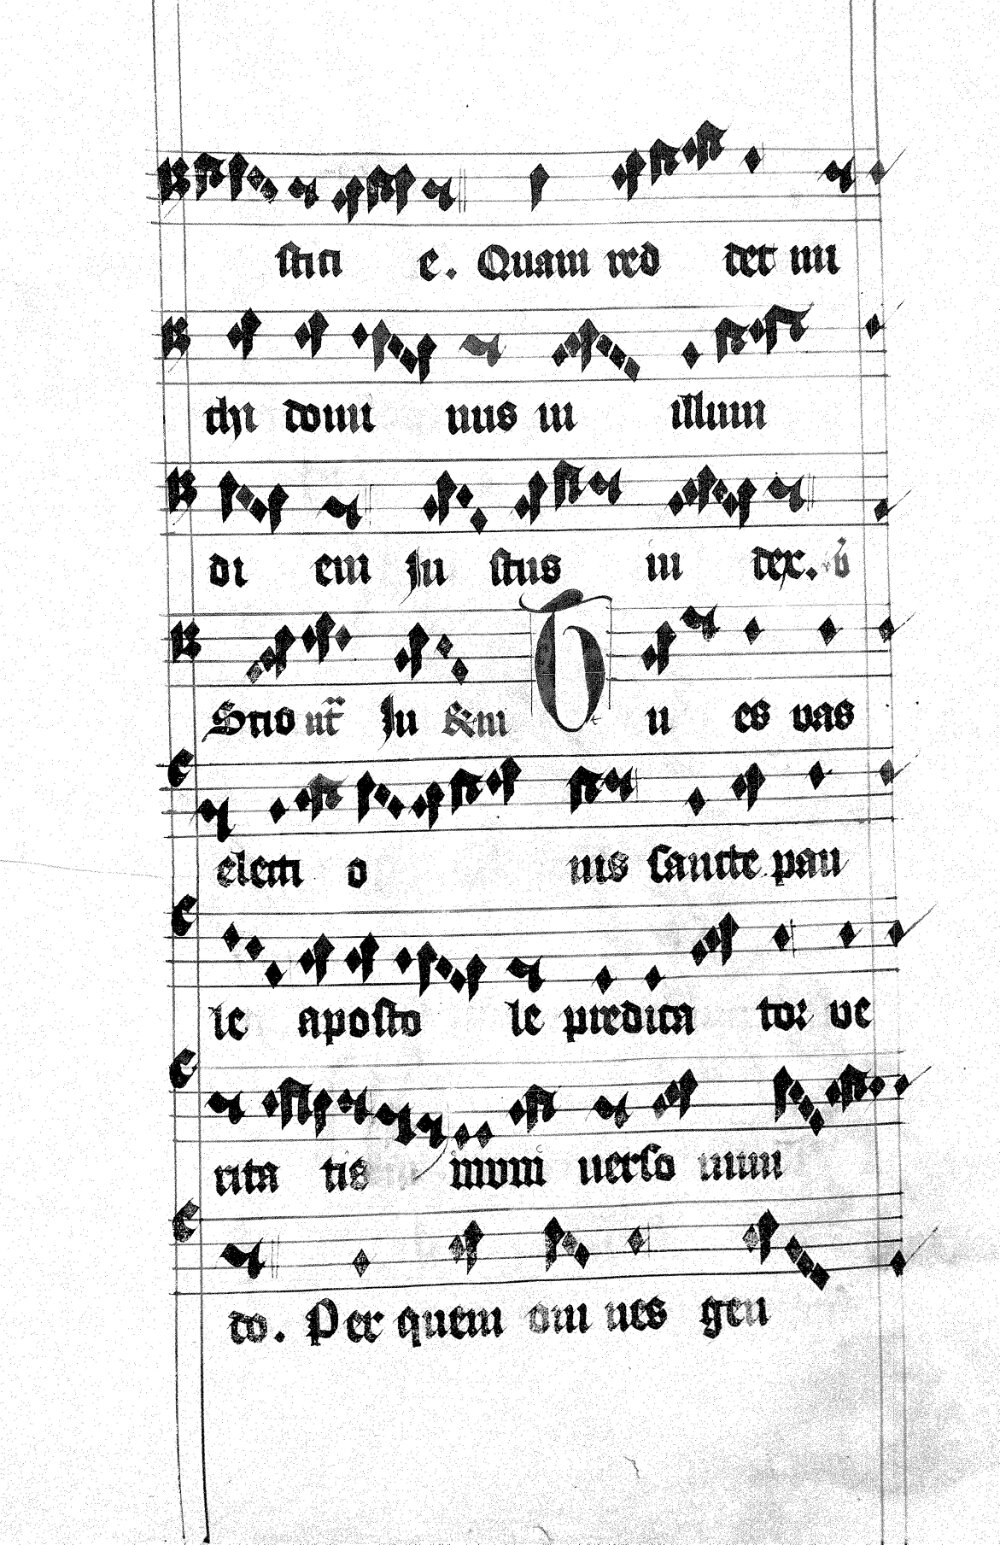 stici e. Quam red det mi
chi domi nus in illum
di em Ju stus iu dex. v̉
Scio ut̃ Ju &m Tu es vas
electi o nis sancte pau
le aposto le predica tor ve
rita tis in vni uerso mun
do. Per quem om nes gen